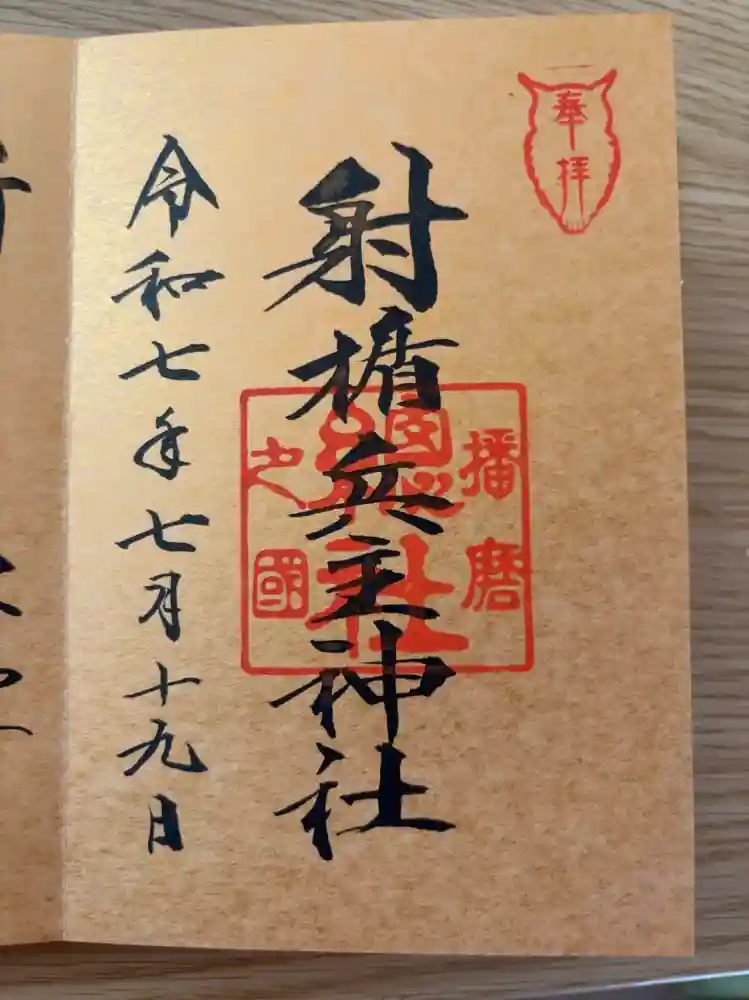 奉拝
射楯兵主神社
播磨
總社
之國
令和七年七月十九日